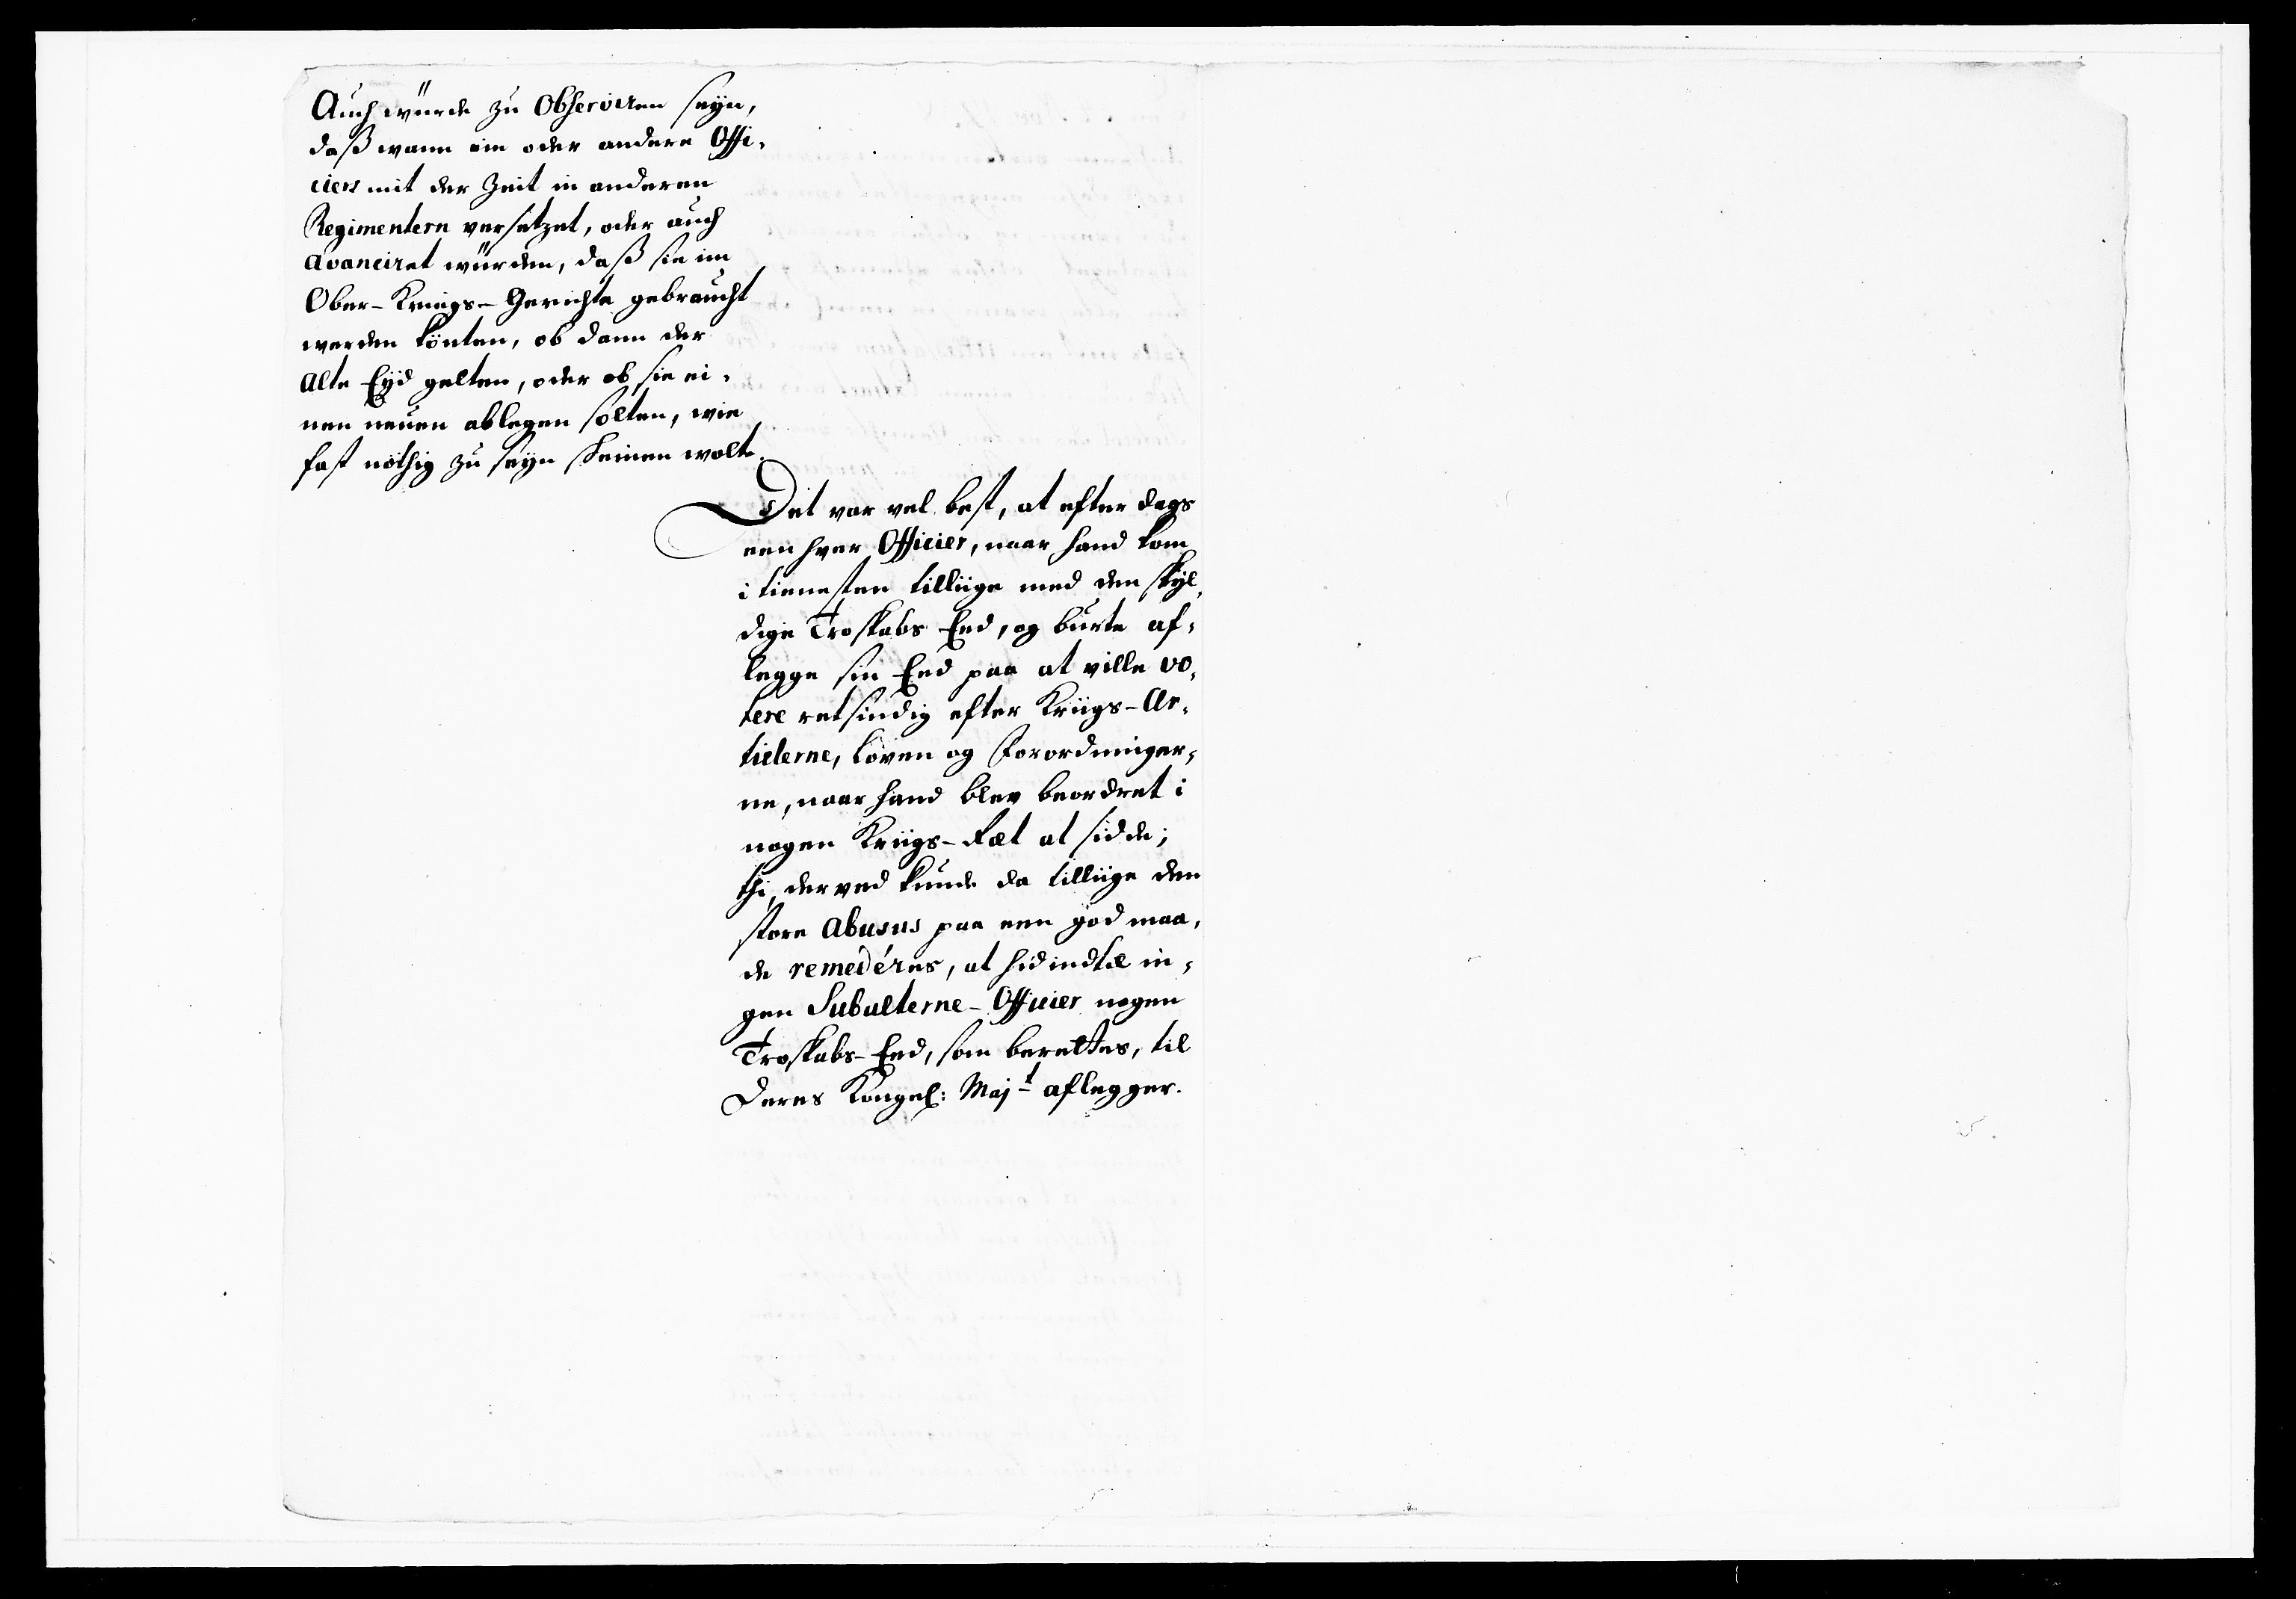 Auch würde zu Observiren seÿn,
daß wann ein oder andere Offi-
ciers mit der Zeit in anderen
Regimentern versetzet, oder auch
avanciret würden, daß sie im
Ober-Kriegs-Gerichte gebraucht
werden könten, ob dann der
alte Eÿd gelten, oder ob sie ei-
nen neuen ablegen solten, wie
fast nöthig zu seÿn scheinen wolte.
Det var vel best, at efter dags
een hver Officier, naar hand kom
i tienesten tilliige med den skÿl-
dige Troskabs Eed, og burte af-
legge sin Eed paa at ville vo-
tere retsindig efter Kriigs-Ar-
ticlerne, loven og Forordninger-
ne, naar hand blev beordret i
nogen Kriigs-Ræt at sidde;
thi derved kunde da tilliige den
store Abusus paa een god maa-
de remedéres, at hid indtil in-
gen Subalterne-Officier nogen
Troskabs-Eed, som berettes, til
Deres Kongel: Maj.t aflegger.